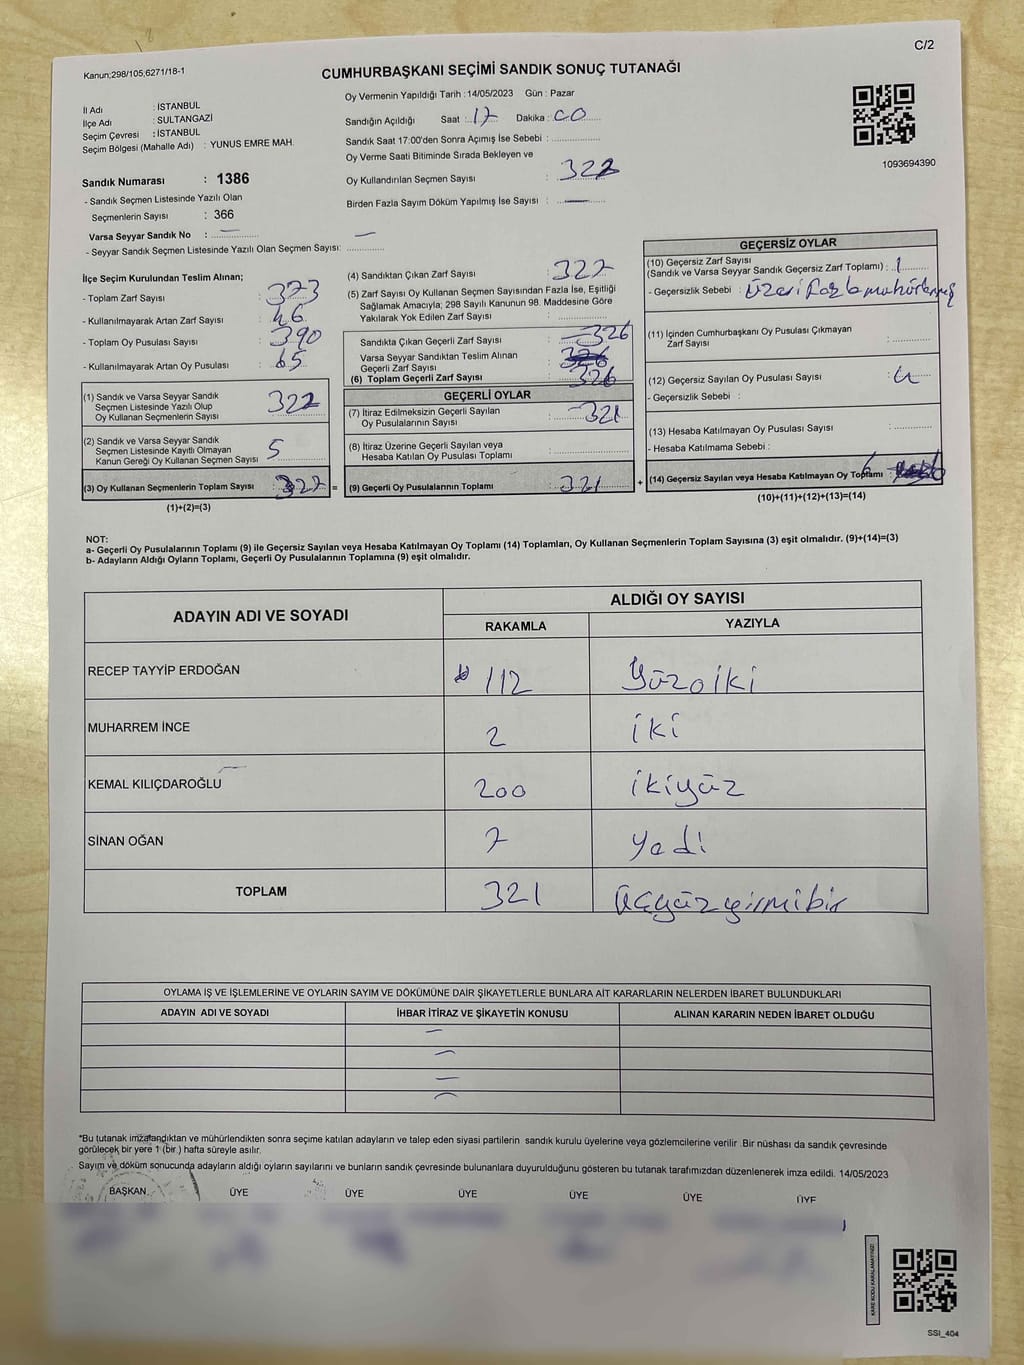 C/2
Kanun;298/105;6271/18-1
CUMHURBAŞKANI SEÇİMİ SANDIK SONUÇ TUTANAĞI
1093694390
İl Adı : İSTANBUL
İlçe Adı : SULTANGAZİ
Seçim Çevresi : İSTANBUL
Seçim Bölgesi (Mahalle Adı) : YUNUS EMRE MAH.
Sandık Numarası : 1386
- Sandık Seçmen Listesinde Yazılı Olan
Seçmenlerin Sayısı : 366
Varsa Seyyar Sandık No :
- Seyyar Sandık Seçmen Listesinde Yazılı Olan Seçmen Sayısı:
Oy Vermenin Yapıldığı Tarih : 14/05/2023 Gün : Pazar
Sandığın Açıldığı Saat : 17 Dakika :
Sandık Saat 17:00'den Sonra Açımış İse Sebebi :
Oy Verme Saati Bitiminde Sırada Bekleyen ve
Oy Kullandırılan Seçmen Sayısı : 322
Birden Fazla Sayım Döküm Yapılmış İse Sayısı :
İlçe Seçim Kurulundan Teslim Alınan;
- Toplam Zarf Sayısı : 373
- Kullanılmayarak Artan Zarf Sayısı : 46
- Toplam Oy Pusulası Sayısı : 390
- Kullanılmayarak Artan Oy Pusulası : 65
(1) Sandık ve Varsa Seyyar Sandık
Seçmen Listesinde Yazılı Olup
Oy Kullanan Seçmenlerin Sayısı : 322
(2) Sandık ve Varsa Seyyar Sandık
Seçmen Listesinde Kayıtlı Olmayan
Kanun Gereği Oy Kullanan Seçmen Sayısı : 5
(3) Oy Kullanan Seçmenlerin Toplam Sayısı : 327
(1)+(2)=(3)
(4) Sandıktan Çıkan Zarf Sayısı : 327
(5) Zarf Sayısı Oy Kullanan Seçmen Sayısından Fazla İse, Eşitliği
Sağlamak Amacıyla; 298 Sayılı Kanunun 98. Maddesine Göre
Yakılarak Yok Edilen Zarf Sayısı :
Sandıkta Çıkan Geçerli Zarf Sayısı : 326
Varsa Seyyar Sandıktan Teslim Alınan
Geçerli Zarf Sayısı :
(6) Toplam Geçerli Zarf Sayısı : 326
GEÇERLİ OYLAR
(7) İtiraz Edilmeksizin Geçerli Sayılan
Oy Pusulalarının Sayısı : 321
(8) İtiraz Üzerine Geçerli Sayılan veya
Hesaba Katılan Oy Pusulası Toplamı :
= (9) Geçerli Oy Pusulalarının Toplamı : 321
GEÇERSİZ OYLAR
(10) Geçersiz Zarf Sayısı
(Sandık ve Varsa Seyyar Sandık Geçersiz Zarf Toplamı) : 1
- Geçersizlik Sebebi : Üzeri fazla mühürlenmiş
(11) İçinden Cumhurbaşkanı Oy Pusulası Çıkmayan
Zarf Sayısı :
(12) Geçersiz Sayılan Oy Pusulası Sayısı :
- Geçersizlik Sebebi :
(13) Hesaba Katılmayan Oy Pusulası Sayısı :
- Hesaba Katılmama Sebebi :
+ (14) Geçersiz Sayılan veya Hesaba Katılmayan Oy Toplamı : 6
(10)+(11)+(12)+(13)=(14)
NOT:
a- Geçerli Oy Pusulalarının Toplamı (9) ile Geçersiz Sayılan veya Hesaba Katılmayan Oy Toplamı (14) Toplamları, Oy Kullanan Seçmenlerin Toplam Sayısına (3) eşit olmalıdır. (9)+(14)=(3)
b- Adayların Aldığı Oyların Toplamı, Geçerli Oy Pusulalarının Toplamına (9) eşit olmalıdır.
ADAYIN ADI VE SOYADI
ALDIĞI OY SAYISI
RAKAMLA YAZIYLA
RECEP TAYYİP ERDOĞAN 112 Yüzoiki
MUHARREM İNCE 2 iki
KEMAL KILIÇDAROĞLU 200 ikiyüz
SİNAN OĞAN 7 Yedi
TOPLAM 321 Üçyüzyirmibir
OYLAMA İŞ VE İŞLEMLERİNE VE OYLARIN SAYIM VE DÖKÜMÜNE DAİR ŞİKAYETLERLE BUNLARA AİT KARARLARIN NELERDEN İBARET BULUNDUKLARI
ADAYIN ADI VE SOYADI İHBAR İTİRAZ VE ŞİKAYETİN KONUSU ALINAN KARARIN NEDEN İBARET OLDUĞU
*Bu tutanak imzalandıktan ve mühürlendikten sonra seçime katılan adayların ve talep eden siyasi partilerin sandık kurulu üyelerine veya gözlemcilerine verilir. Bir nüshası da sandık çevresinde
görülecek bir yere 1 (bir.) hafta süreyle asılır.
Sayım ve döküm sonucunda adayların aldığı oyların sayılarını ve bunların sandık çevresinde bulunanlara duyurulduğunu gösteren bu tutanak tarafımızdan düzenlenerek imza edildi. 14/05/2023
BAŞKAN ÜYE ÜYE ÜYE ÜYE ÜYE ÜYE
KARE KODU KARALAMAYINIZ!
SSI_404